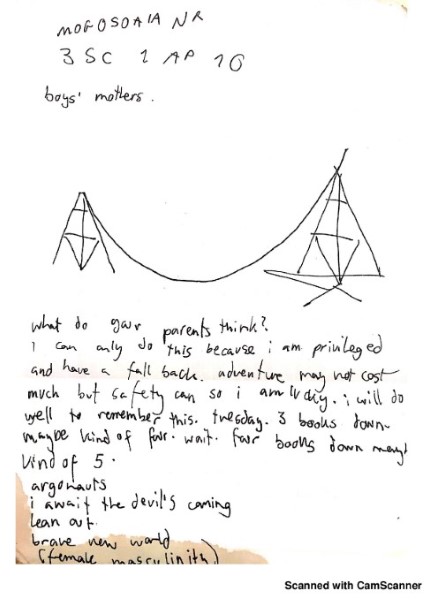 MOGOSOAIA NR
3 SC 1 AP 10
boys' mothers.
what do your parents think?
i can only do this because i am privileged
and have a fall back. adventure may not cost
much but safety can so i am lucky. i will do
well to remember this. tuesday. 3 books down
maybe kind of four. wait. four books down maybe
kind of 5.
argonauts
i await the devil's coming
lean out
brave new world
(female masculinity)
Scanned with CamScanner